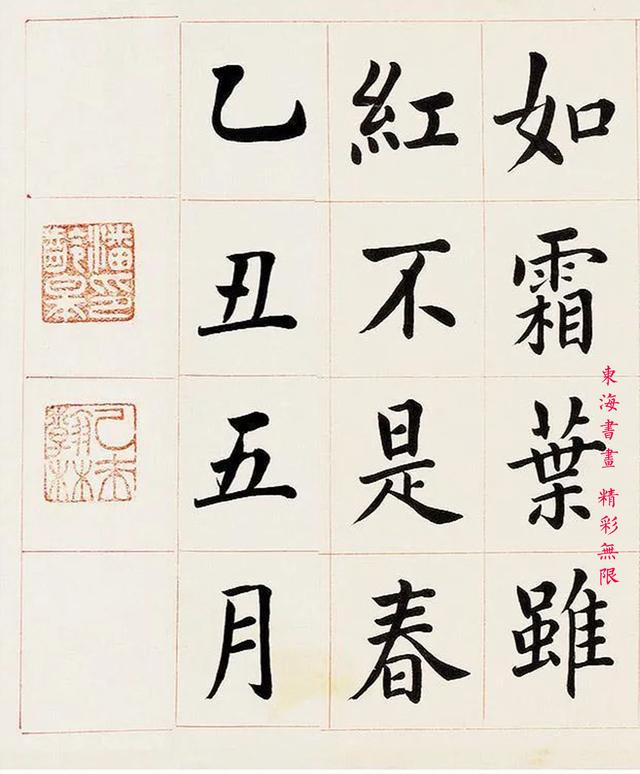 如霜葉雖
紅不是春
乙丑五月
潘印齡皋
乙未翰林
東海書畫 精彩無限